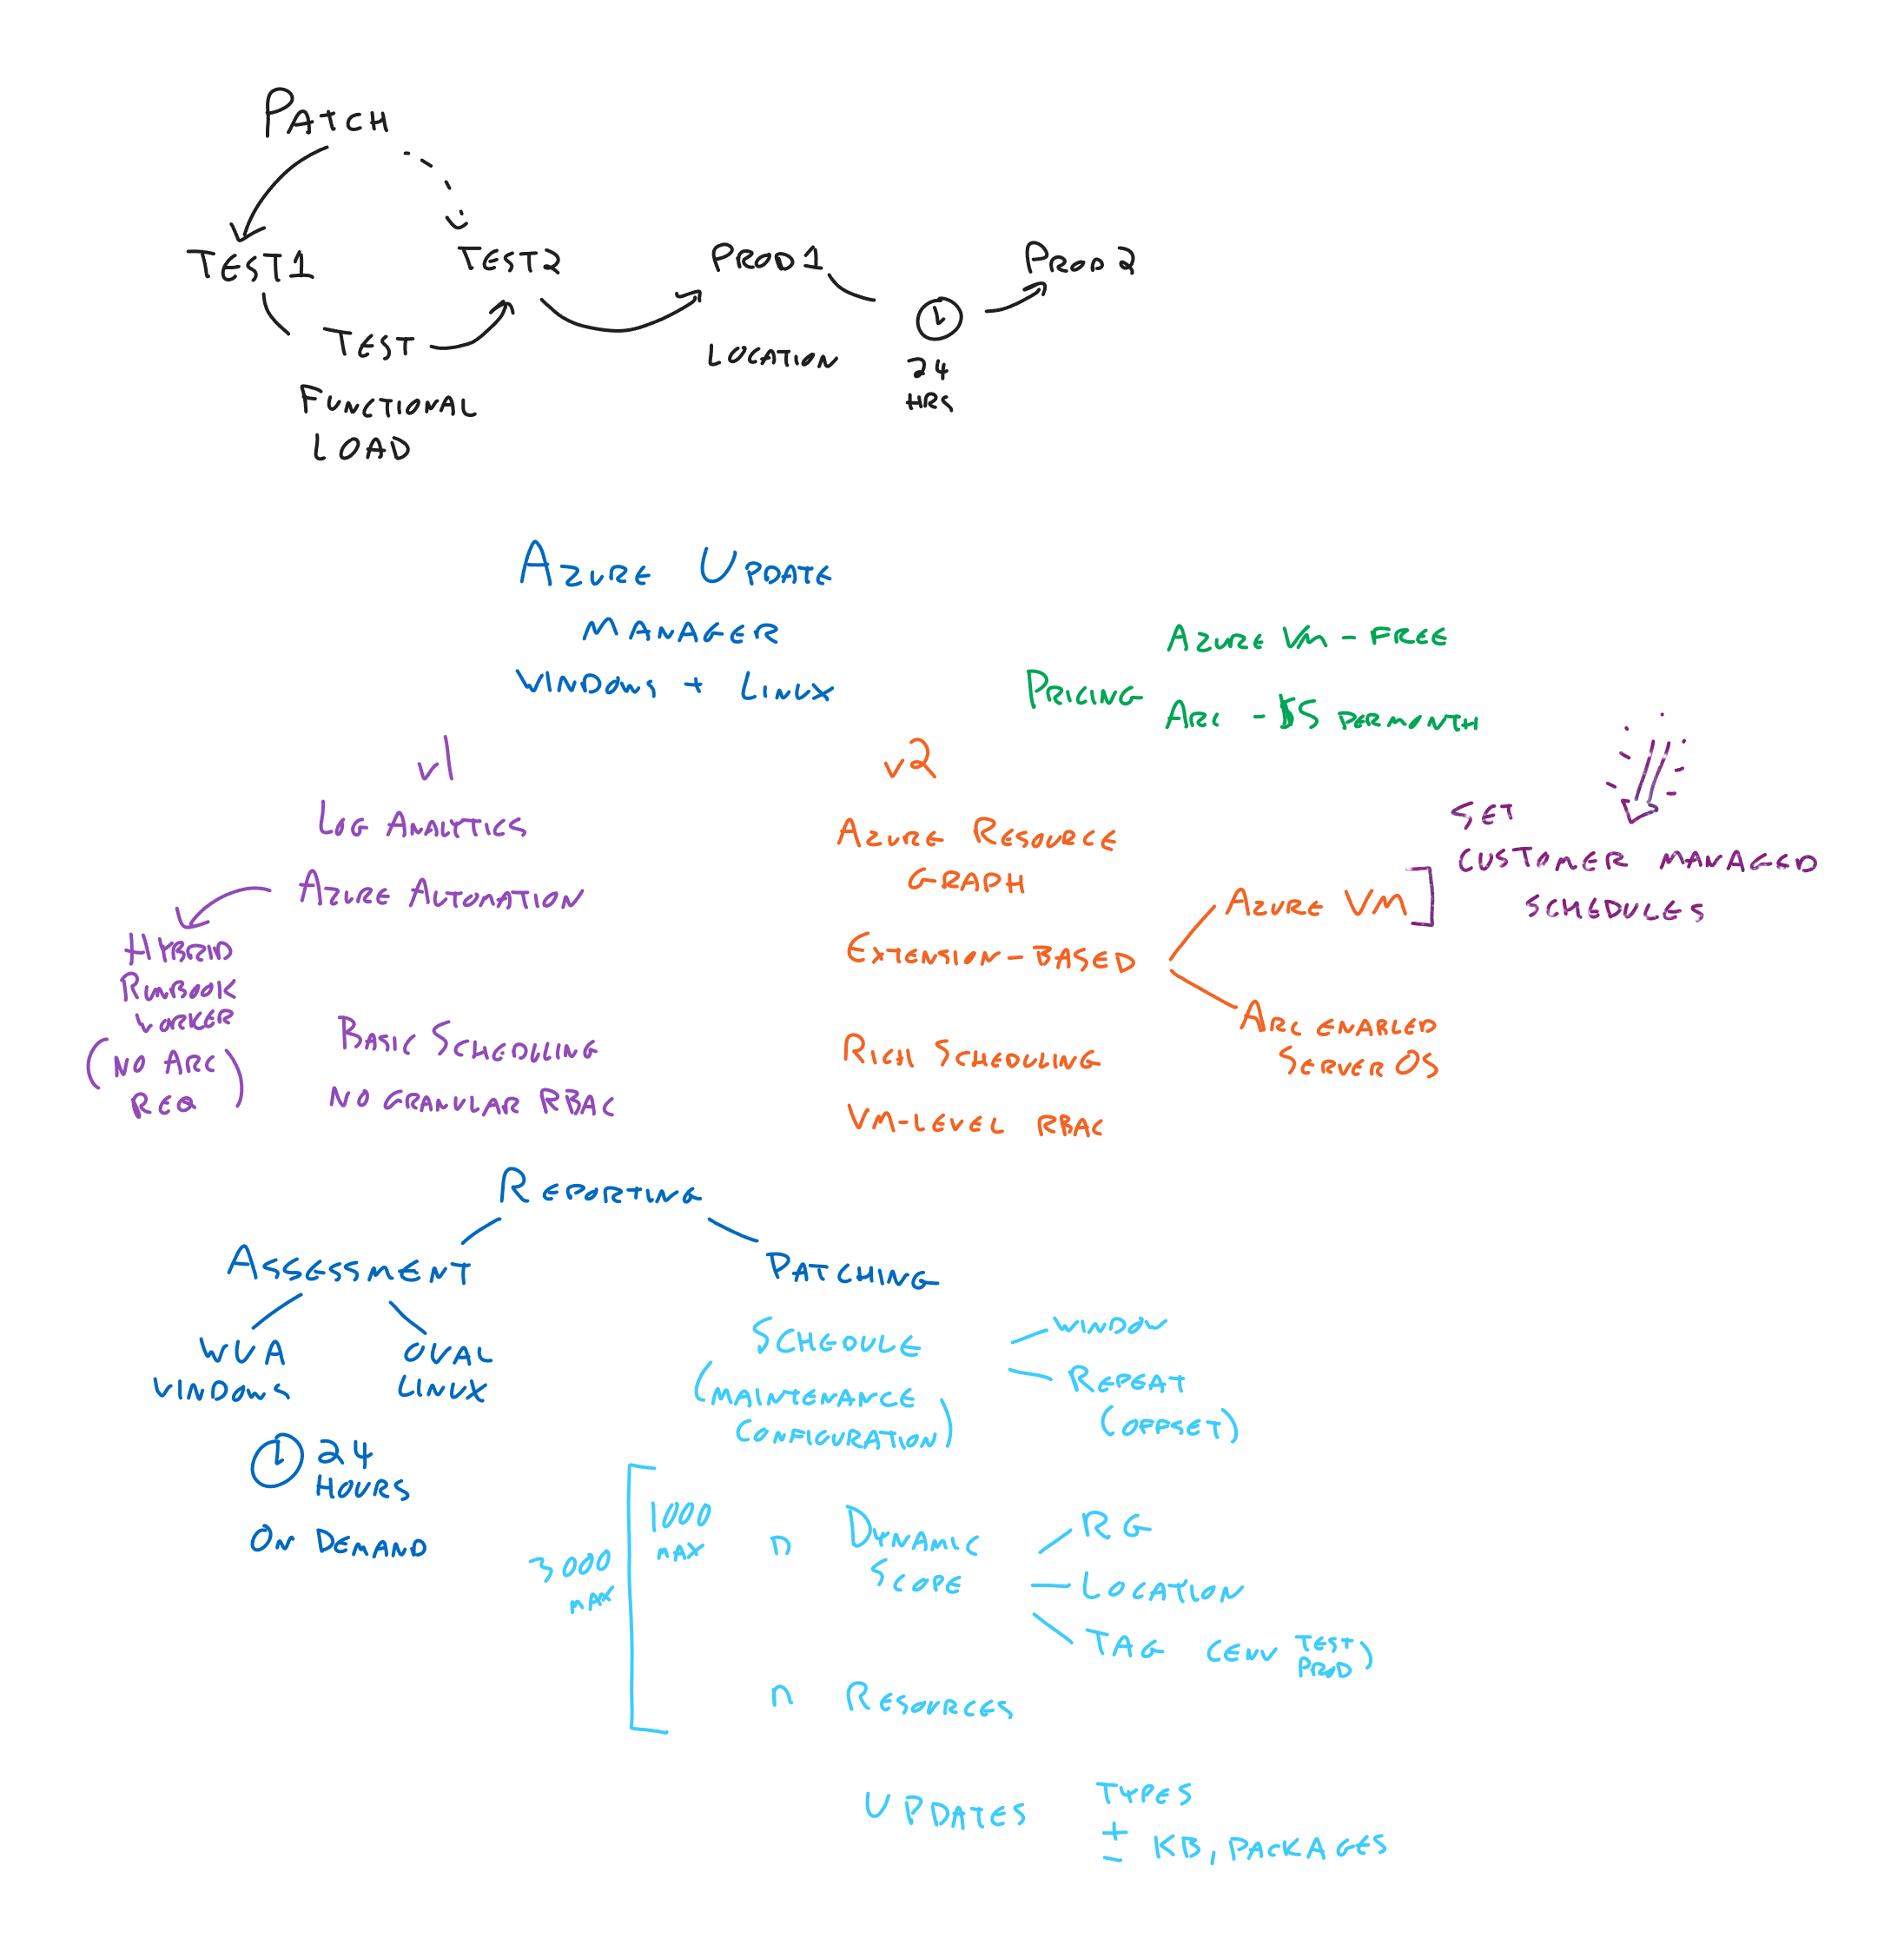 PATCH
TEST1
TEST2
PROD1
PROD2
TEST
FUNCTIONAL
LOAD
LOCATION
24
HRS
AZURE UPDATE
MANAGER
WINDOWS + LINUX
PRICING
AZURE VM - FREE
ARC - $5 PER MONTH
v1
LOG ANALYTICS
AZURE AUTOMATION
HYBRID
RUNBOOK
WORKER
(NO ARC
REQ)
BASIC SCHEDULING
NO GRANULAR RBAC
v2
AZURE RESOURCE
GRAPH
EXTENSION-BASED
AZURE VM
ARC ENABLED
SERVER OS
SET
CUSTOMER MANAGED
SCHEDULES
RICH SCHEDULING
VM-LEVEL RBAC
REPORTING
ASSESSMENT
WUA
WINDOWS
OVAL
LINUX
24
HOURS
ON DEMAND
PATCHING
SCHEDULE
(MAINTENANCE
CONFIGURATION)
WINDOW
REPEAT
(OFFSET)
3000
MAX
1000
MAX
n DYNAMIC
SCOPE
RG
LOCATION
TAG (ENV TEST
PROD)
n RESOURCES
UPDATES
TYPES
+
- KB, PACKAGES